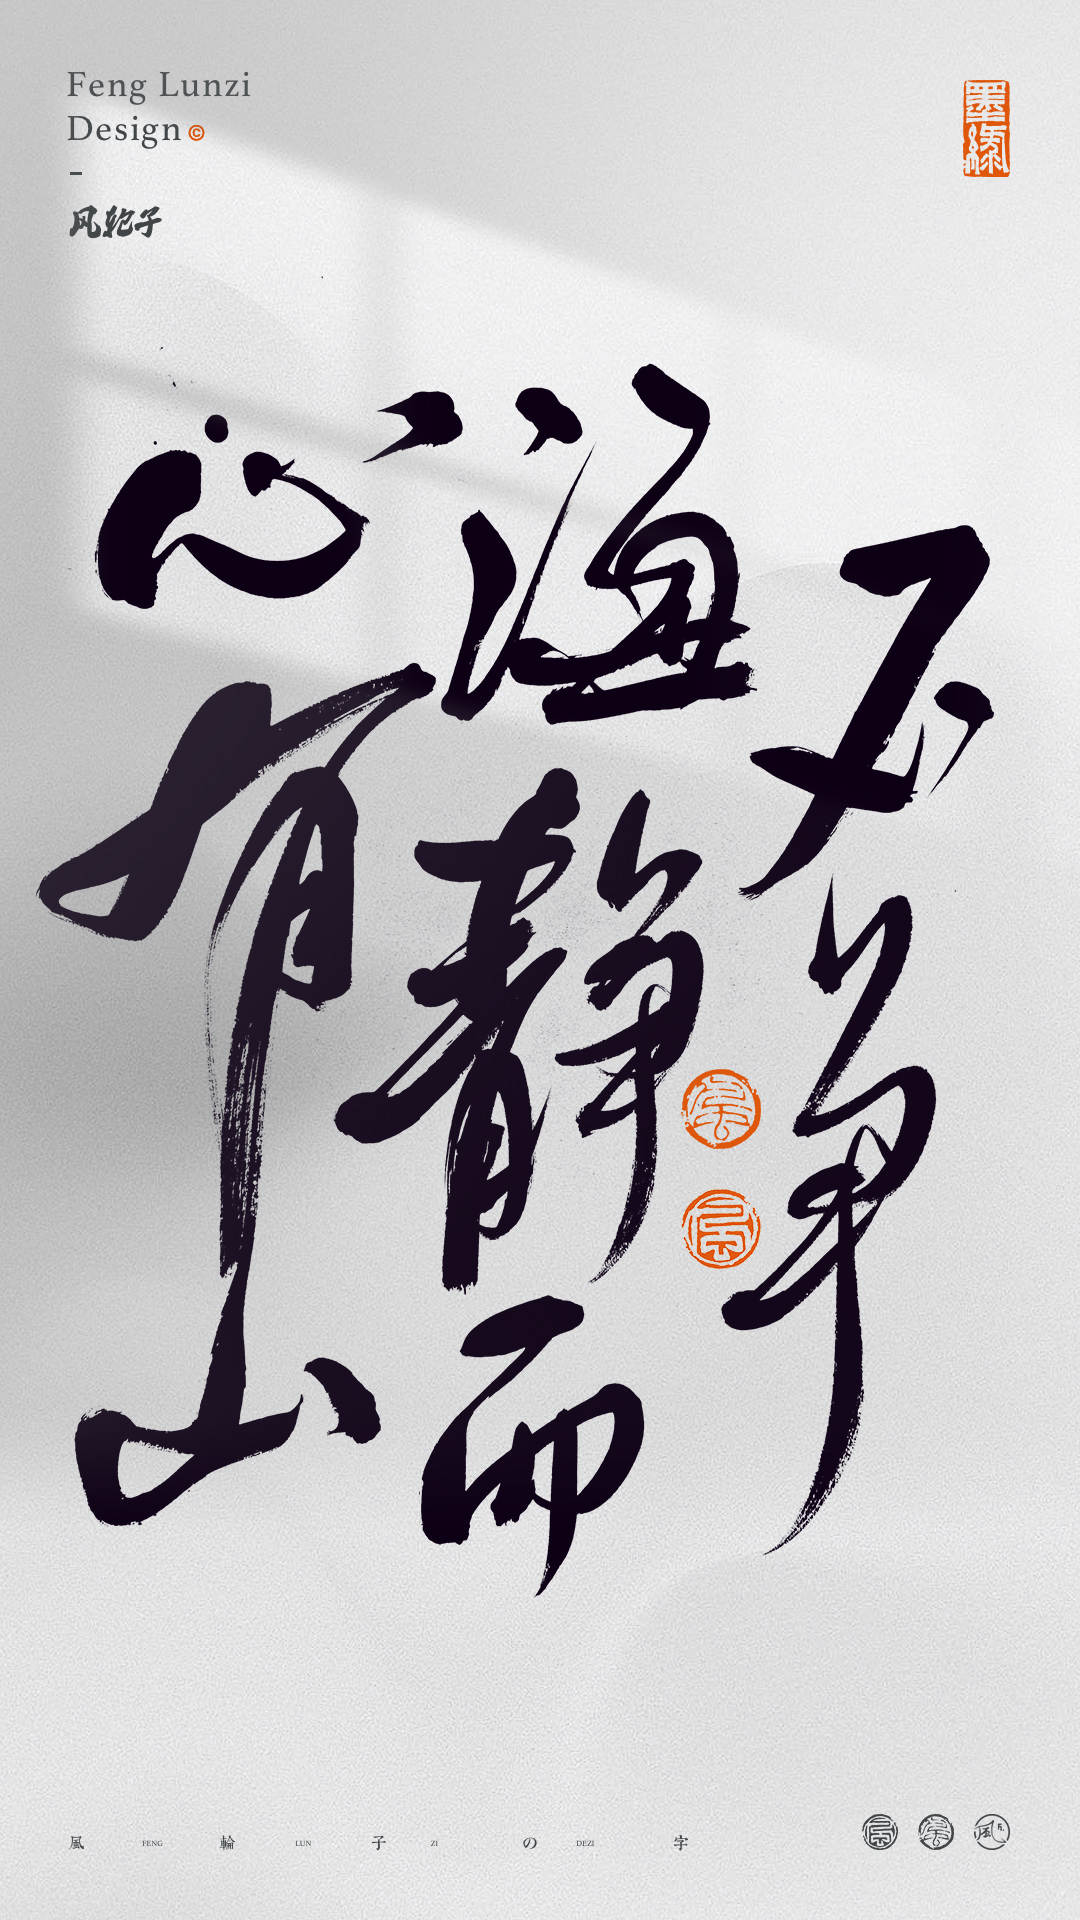 Feng Lunzi
Design©
风轮子
墨緣
心有山
海静而
不争
風 FENG 輪 LUN 子 ZI の DEZI 字